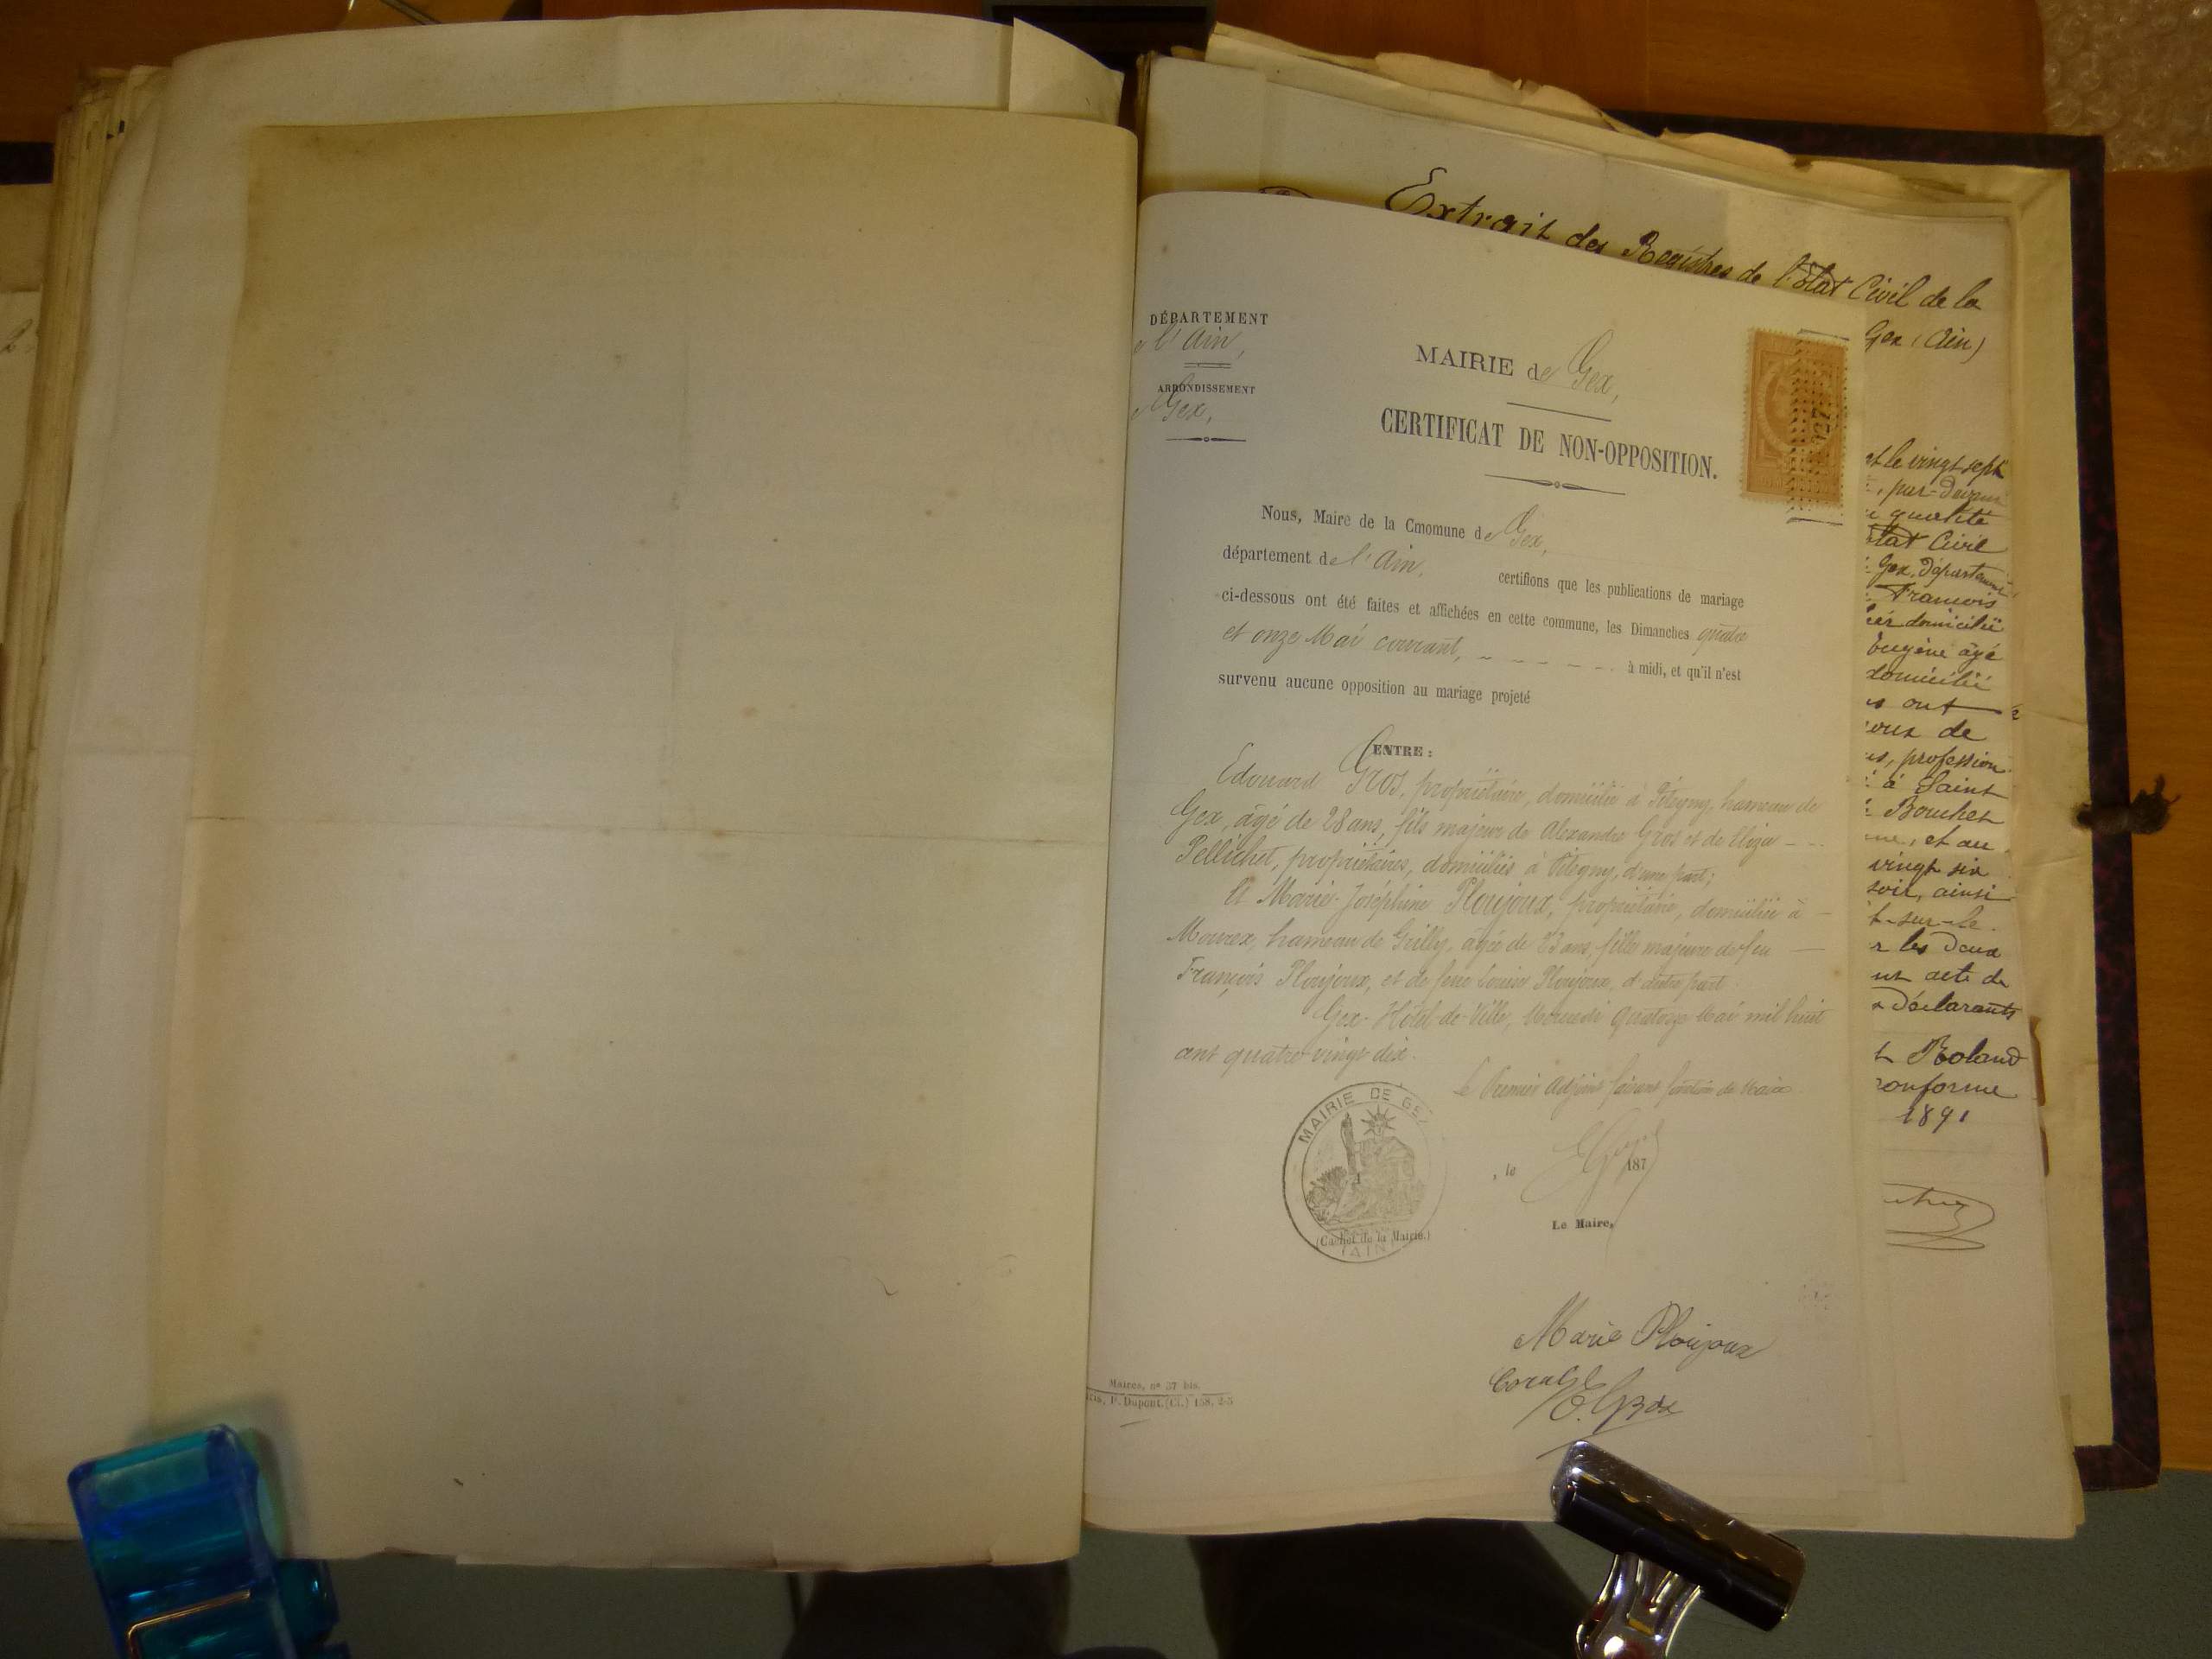 Extrait des Registres de l'Etat Civil de la
Gex (Ain)
DÉPARTEMENT
de l'Ain,
ARRONDISSEMENT
de Gex,
MAIRIE de Gex,
CERTIFICAT DE NON-OPPOSITION.
Nous, Maire de la Cmomune de Gex,
département de l'Ain, certifions que les publications de mariage
ci-dessous ont été faites et affichées en cette commune, les Dimanches quatre
et onze Mai courant, à midi, et qu'il n'est
survenu aucune opposition au mariage projeté
ENTRE :
Edouard Gros, propriétaire, domicilié à Pitegny, hameau de
Gex, âgé de 28 ans, fils majeur de Alexandre Gros et de Eliza
Pellichet, propriétaires, domiciliés à Pitegny, d'une part;
Et Marie-Joséphine Ploujoux, propriétaire, domiciliée à
Mourex, hameau de Grilly, âgée de 23 ans, fille majeure de feu
François Ploujoux, et de feue Louise Ploujoux, d'autre part
Gex-Hôtel-de-Ville, Mercredi quatorze Mai mil huit
cent quatre vingt dix.
Le Premier Adjoint faisant fonction de Maire
MAIRIE DE GEX
(AIN)
(Cachet de la Mairie.)
, le 187
Le Maire,
Marie Ploujoux
E. Gros
Maires, nº 37 bis.
P. Dupont. (Cl.) 158. 2-5
et le vingt sept
, par-devant
qualité
Etat Civil
Gex, département
François
domicilié
Eugène âgé
domicilié
ont
vous de
, profession
à Saint
Bouchet
, et au
vingt six
soir, ainsi
-sur-le
les deux
acte de
déclarants
Roland
conforme
1891